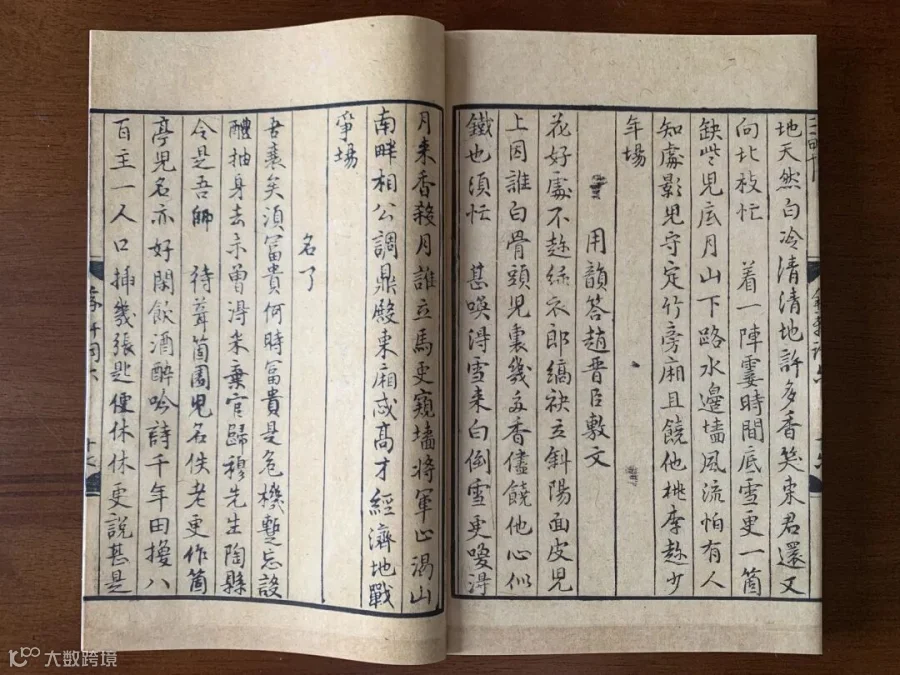 地天然自冷清清地許多香笑東君還又
向北枝忙　着一陣霎時間底雪更一箇
缺些兒底月山下路水邊墻風流怕有人
知處影兒守定竹旁廂且饒他桃李趂少
年場
用韻答趙晋臣敷文
花好處不趂綠衣郎縞袂立斜陽面皮兒
上因誰白骨頭兒裏幾多香儘饒他心似
鐵也須忙　甚喚得雪来白倒雪更喚得
月来香殺月誰立馬更窺墻將軍止渴山
南畔相公調鼎殿東廂忒高才經濟地戰
爭場
名了
吾衰矣須富貴何時富貴是危機蹔忘設
醴抽身去未曾得米棄官歸穆先生陶縣
令是吾師　待葺箇園兒名佚老更作箇
亭兒名亦好閑飲酒醉吟詩千年田換八
百主一人口插幾張匙便休休更説甚是
大数跨境